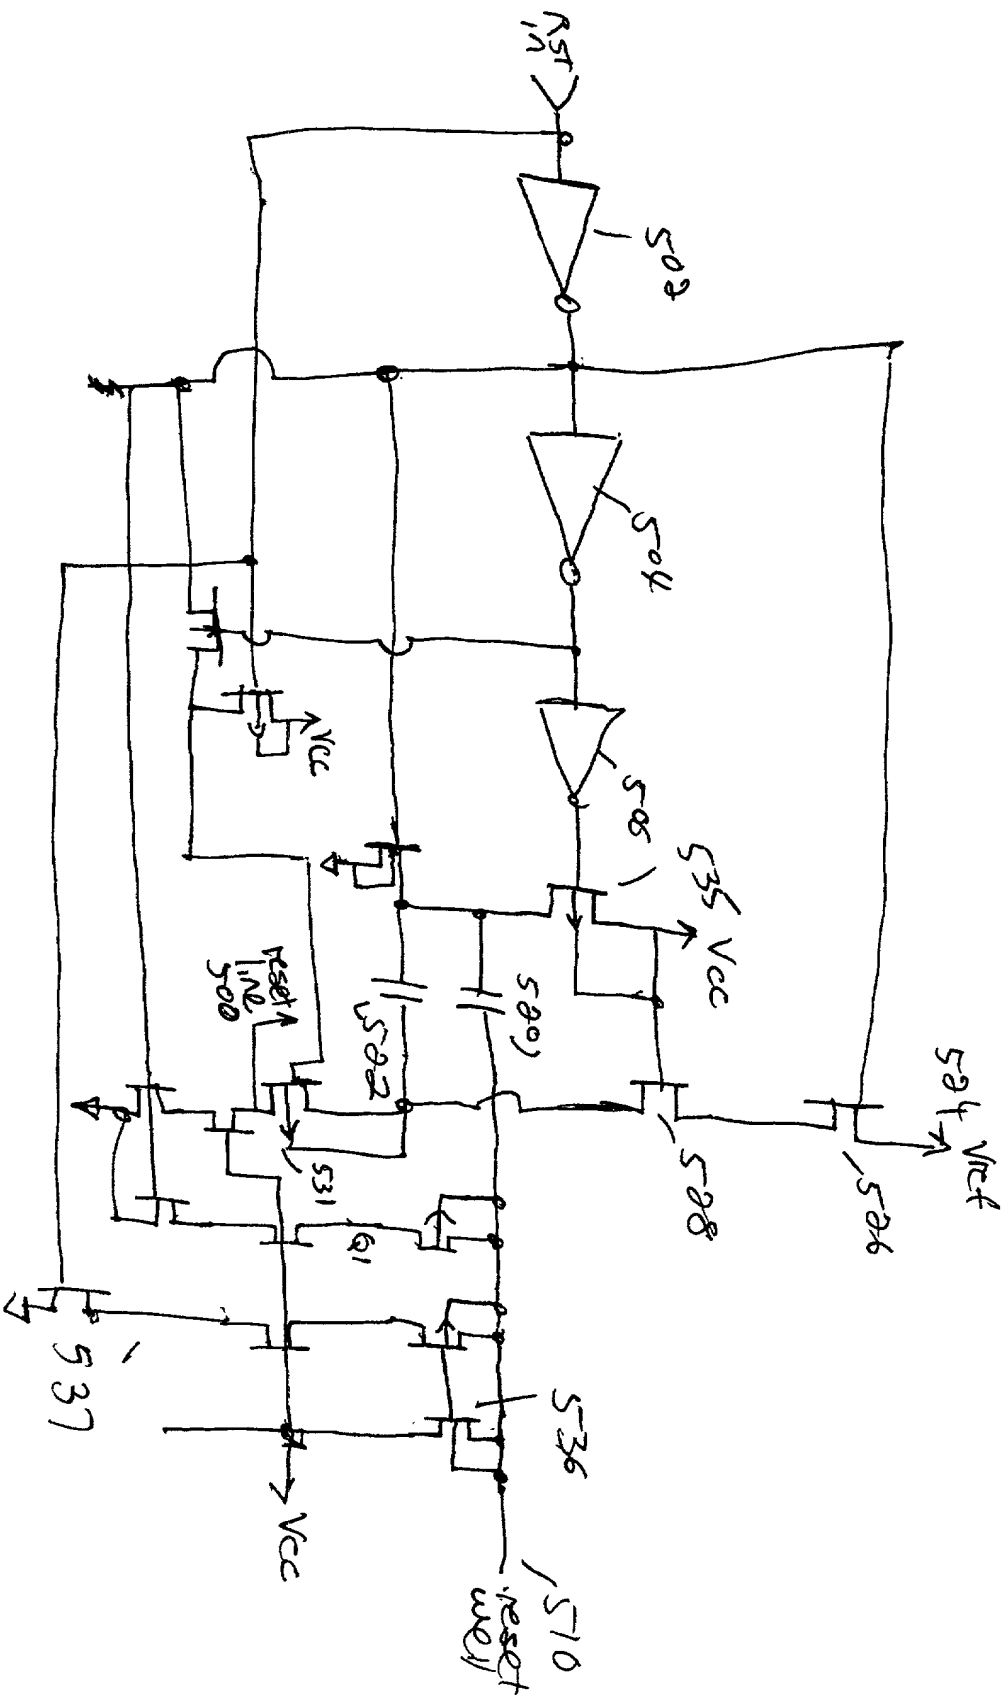 RST
in
502
504
506
535
Vcc
Vcc
524
Vref
526
528
520
522
reset
line
500
531
Q1
537
536
Vcc
510
reset
well